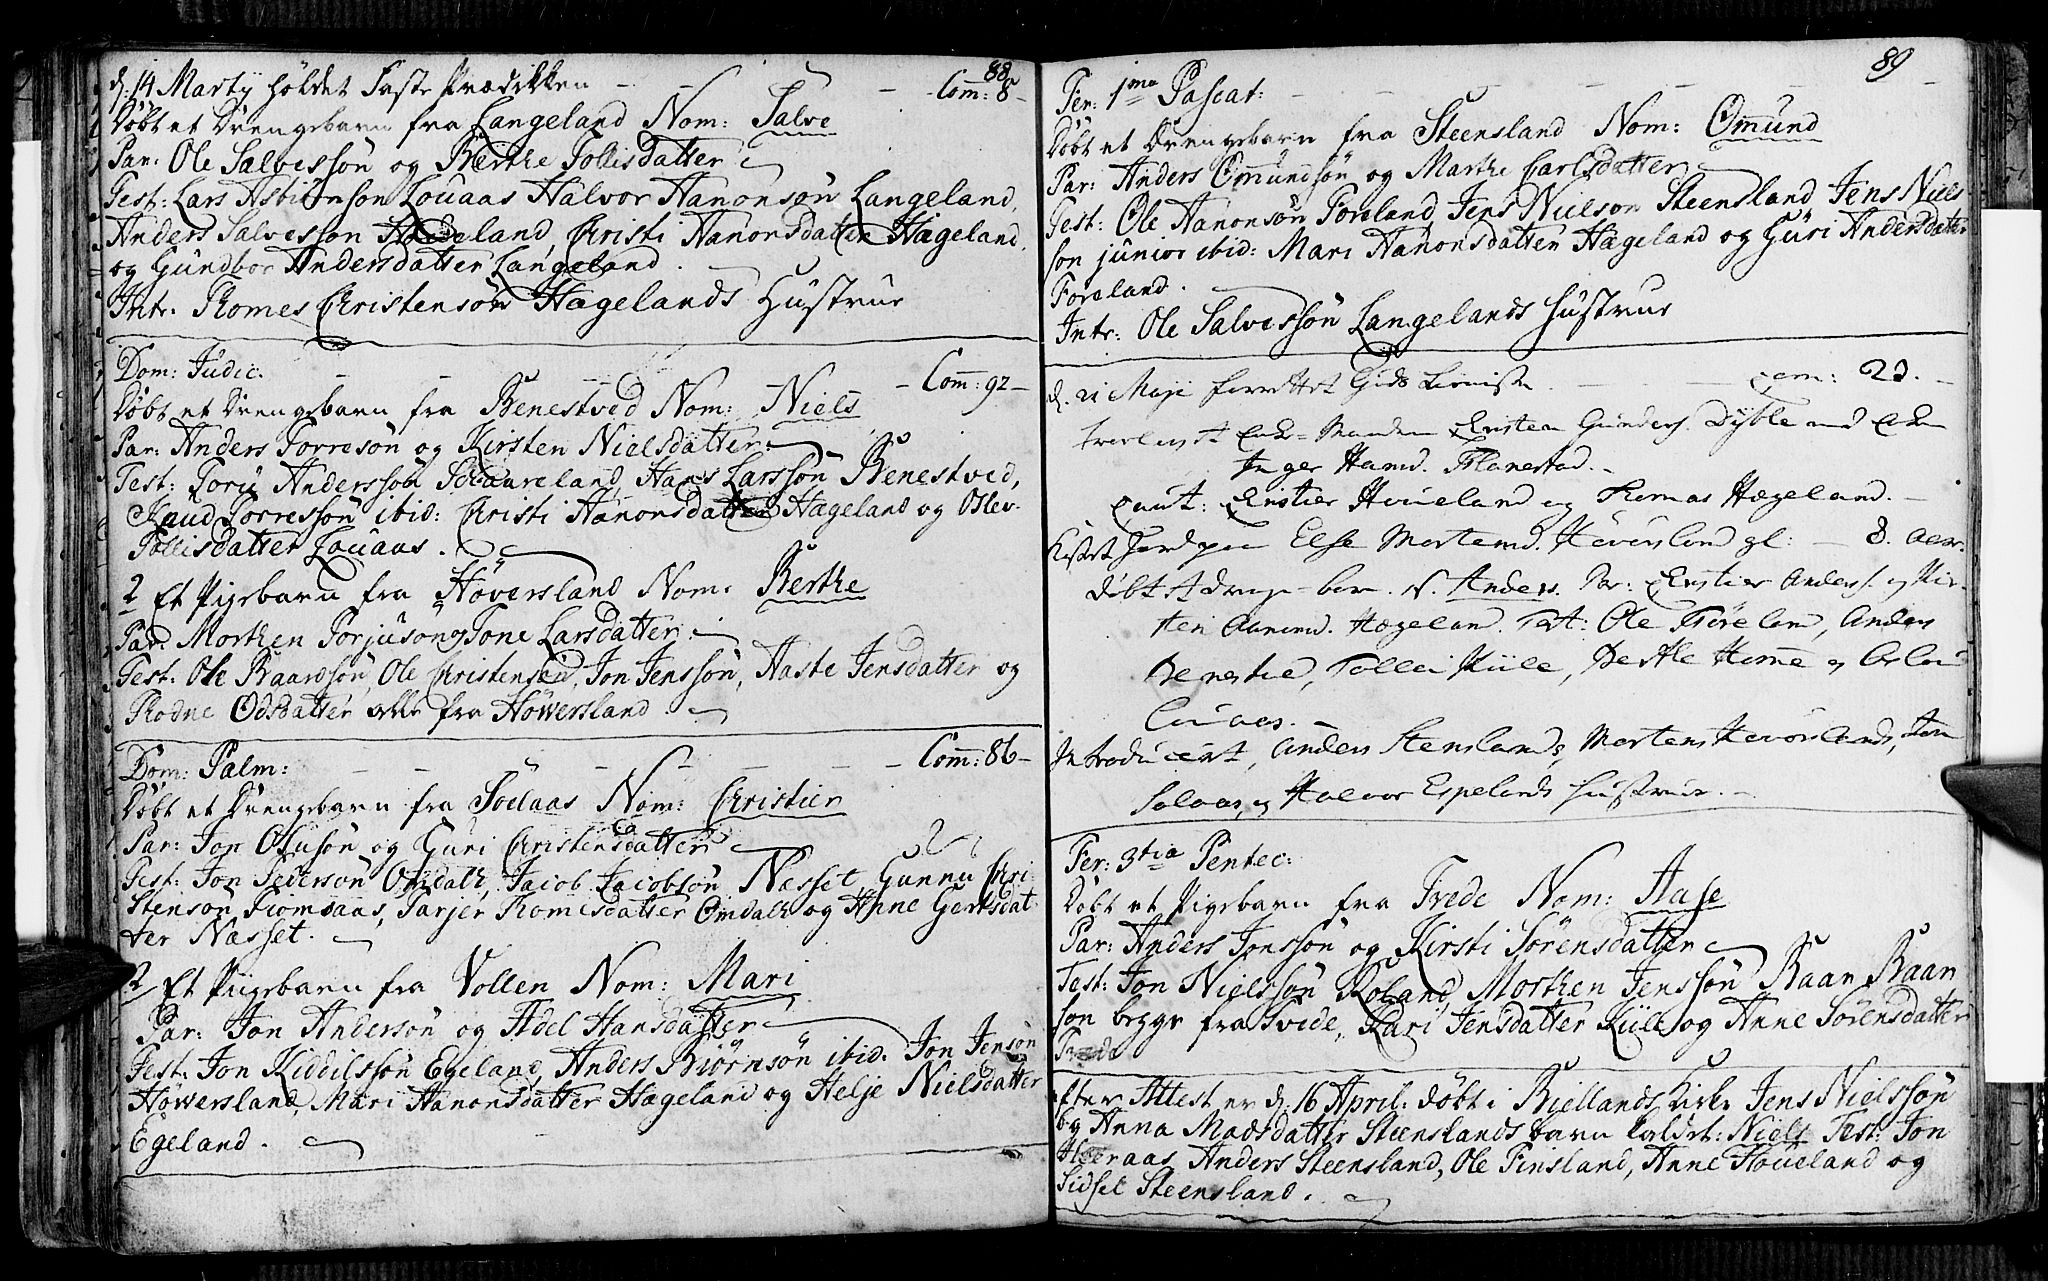 88
d. 14 Marty holdet Faste Prædikken - - - - Com: 8 -
Döbt et Drengebarn fra Langeland Nom: Salve
Par: Ole Salvessön og Berthe Tollisdatter
Test: Lars Asbiönson Louaas Halvor Hanonsön Langeland,
Anders Salvesson Hægeland, Christi Hanonsdatter Hægeland,
og Gundbor Andersdatter Langeland.
Intr. Thomes Christensön Hægelands Hustrue
Dom: Judic. - - - - Com: 92 -
Döbt et Drengebarn fra Benestved Nom: Niels
Par: Anders Torresön og Kirsten Nielsdatter
Test: Tory Andersson Schaureland, Hans Larssön Benestved,
Knud Torressön ibid: Christi Hanonsdatter Hægeland og Oslev
Tollisdatter Louaas.
2 Et Pigebarn fra Höversland Nom: Berthe
Par: Morthen Torjuson og Tone Larsdatter
Test: Ole Baardsön, Ole Christensen, Jon Jenssön, Haste Jensdatter og
Thodne Odsdatter alle fra Höwersland.
Dom: Palm: - - - - Com: 86 -
Döbt et Drengebarn fra Söelaas Nom: Christien
Par: Jon Olusön og Guri Christensdatter
Test: Jon Pederson Omdal, Jacob Jacobsön Næsset, Gunnu Chri-
stensön Fromaas, Tarjer Thomesdatter Omdalk og Anne Gertsdat-
ter Næsset.
2 Et Piigebarn fra Vollen Nom: Mari
Par: Jon Andersön og Adel Hansdatter
Test: Jon Kiddilssön Egeland, Anders Biörnsön ibid: Jon Jensön
Höwersland, Mari Hanonsdatter Hægeland og Helje Nielsdatter
Egeland.
89
Fer: 1ma Pascat: - - - -
Döbt et Drengebarn fra Steensland Nom: Omund
Par: Anders Omundsön og Marthe Carlsdatter
Test: Ole Hanonsön Foreland, Jens Nielson Steensland, Jens Niels
son junior ibid: Mari Hanonsdatter Hægeland og Guri Andersdatter
Foreland.
Intr: Ole Salvessön Langelands Hustrue
d. 21 Maji forrettet Guds Tieniste - - Com: 23. -
trolovet Enke-Manden Christen Gunders. Dyble med Enken
Inger Hansd. Flanestad.
Caut: Christen Houeland og Thomas Hægeland. -
Kastet Jord paa Else Mortensd. Höversland gl: - 8. aar.
döbt et drenge-barn. N. Anders. Par: Christen Anders. og Kir-
sten Aanund. Hægeland. Test: Ole Föreland, Anders
Benestve, Tollei Kiile, Berthe Homme og Aslau
Louaas.
Introduceret, Anders Stenslands, Mortens Höverslands, Jon
Solaas, og Halvor Espelands Hustruer.
Fer: 3tia Pentec:
Döbt et Pigebarn fra Trede Nom: Aase
Par: Anders Jonssön og Kirsti Sörensdatter
Test: Jon Nielssön Röland, Morthen Jenssön Baar Baar
son begge fra Tvede, Kari Jensdatter Kiile og Anne Sörensdatter
Trede
Efter Attest er d. 16 April: döbt i Biellands Kirke Jens Nielssön
og Anna Madsdatter Steenslands barn kaldet: Niels Test: Jon
Aaeraas, Anders Steensland, Ole Finsland, Anne Houeland og
Sidsel Steensland.